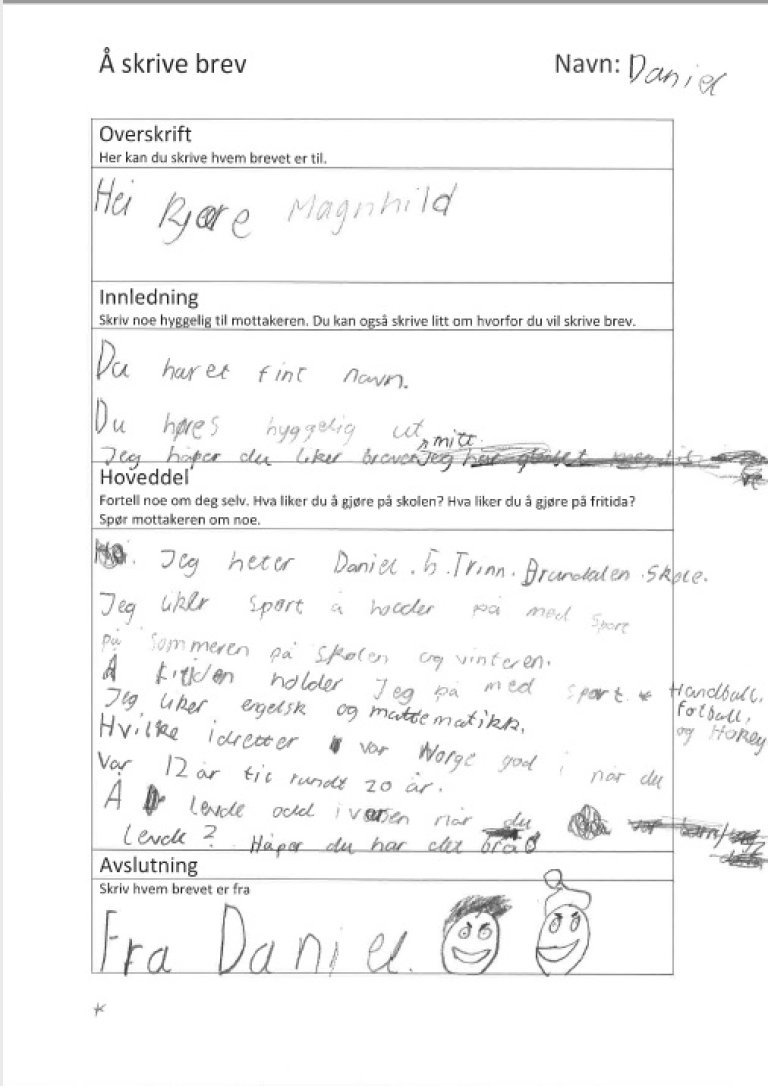 Å skrive brev
Navn: Daniel
Overskrift
Her kan du skrive hvem brevet er til.
Hei Kjære Magnhild
Innledning
Skriv noe hyggelig til mottakeren. Du kan også skrive litt om hvorfor du vil skrive brev.
Du har et fint navn.
Du høres hyggelig ut
Jeg håper du liker brevet mitt.
Hoveddel
Fortell noe om deg selv. Hva liker du å gjøre på skolen? Hva liker du å gjøre på fritida?
Spør mottakeren om noe.
Jeg heter Daniel. 5. Trinn. Brundalen skole.
Jeg liker sport å holder på med sport
på sommeren på skolen og vinteren.
Å fritiden holder jeg på med sport. Handball,
fotball,
og Hokey
Jeg liker engelsk og mattematikk.
Hvilke idretter var Norge god i når du
var 12 år til rundt 20 år.
Å levde når du
levde? Håper du har det bra
Avslutning
Skriv hvem brevet er fra
Fra Daniel.
*